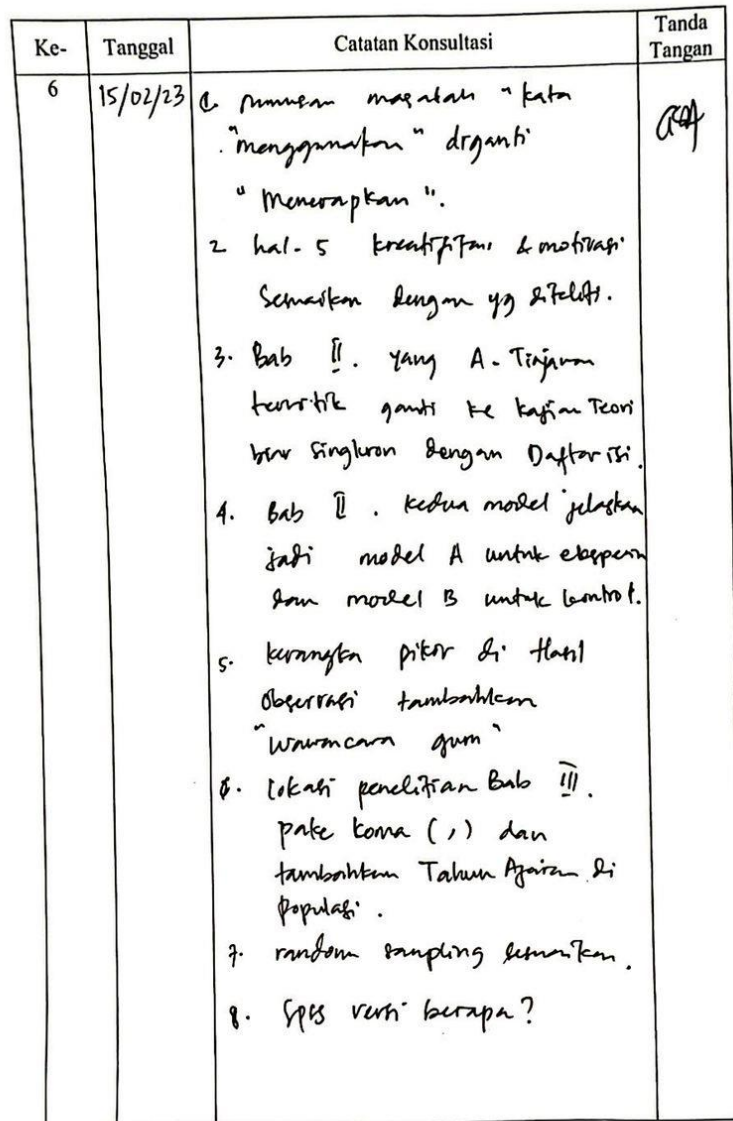 Ke- Tanggal Catatan Konsultasi Tanda Tangan
6 15/02/23 1. rumusan masalah "kata
"menggunakan" diganti
"Menerapkan".
2 hal. 5 kreatifitas & motivasi
Sesuaikan dengan yg diteliti.
3. Bab II. yang A. Tinjauan
teoritik ganti ke kajian Teori
biar Singkron dengan Daftar isi.
4. Bab II. kedua model jelaskan
jadi model A untuk eksperim
dan model B untuk kontrol.
5. kerangka pikir di Hasil
Observasi tambahkan
"wawancara guru"
6. lokasi penelitian Bab III.
pake koma (,) dan
tambahkan Tahun Ajaran di
Populasi.
7. random sampling sesuaikan.
8. Spss versi berapa?